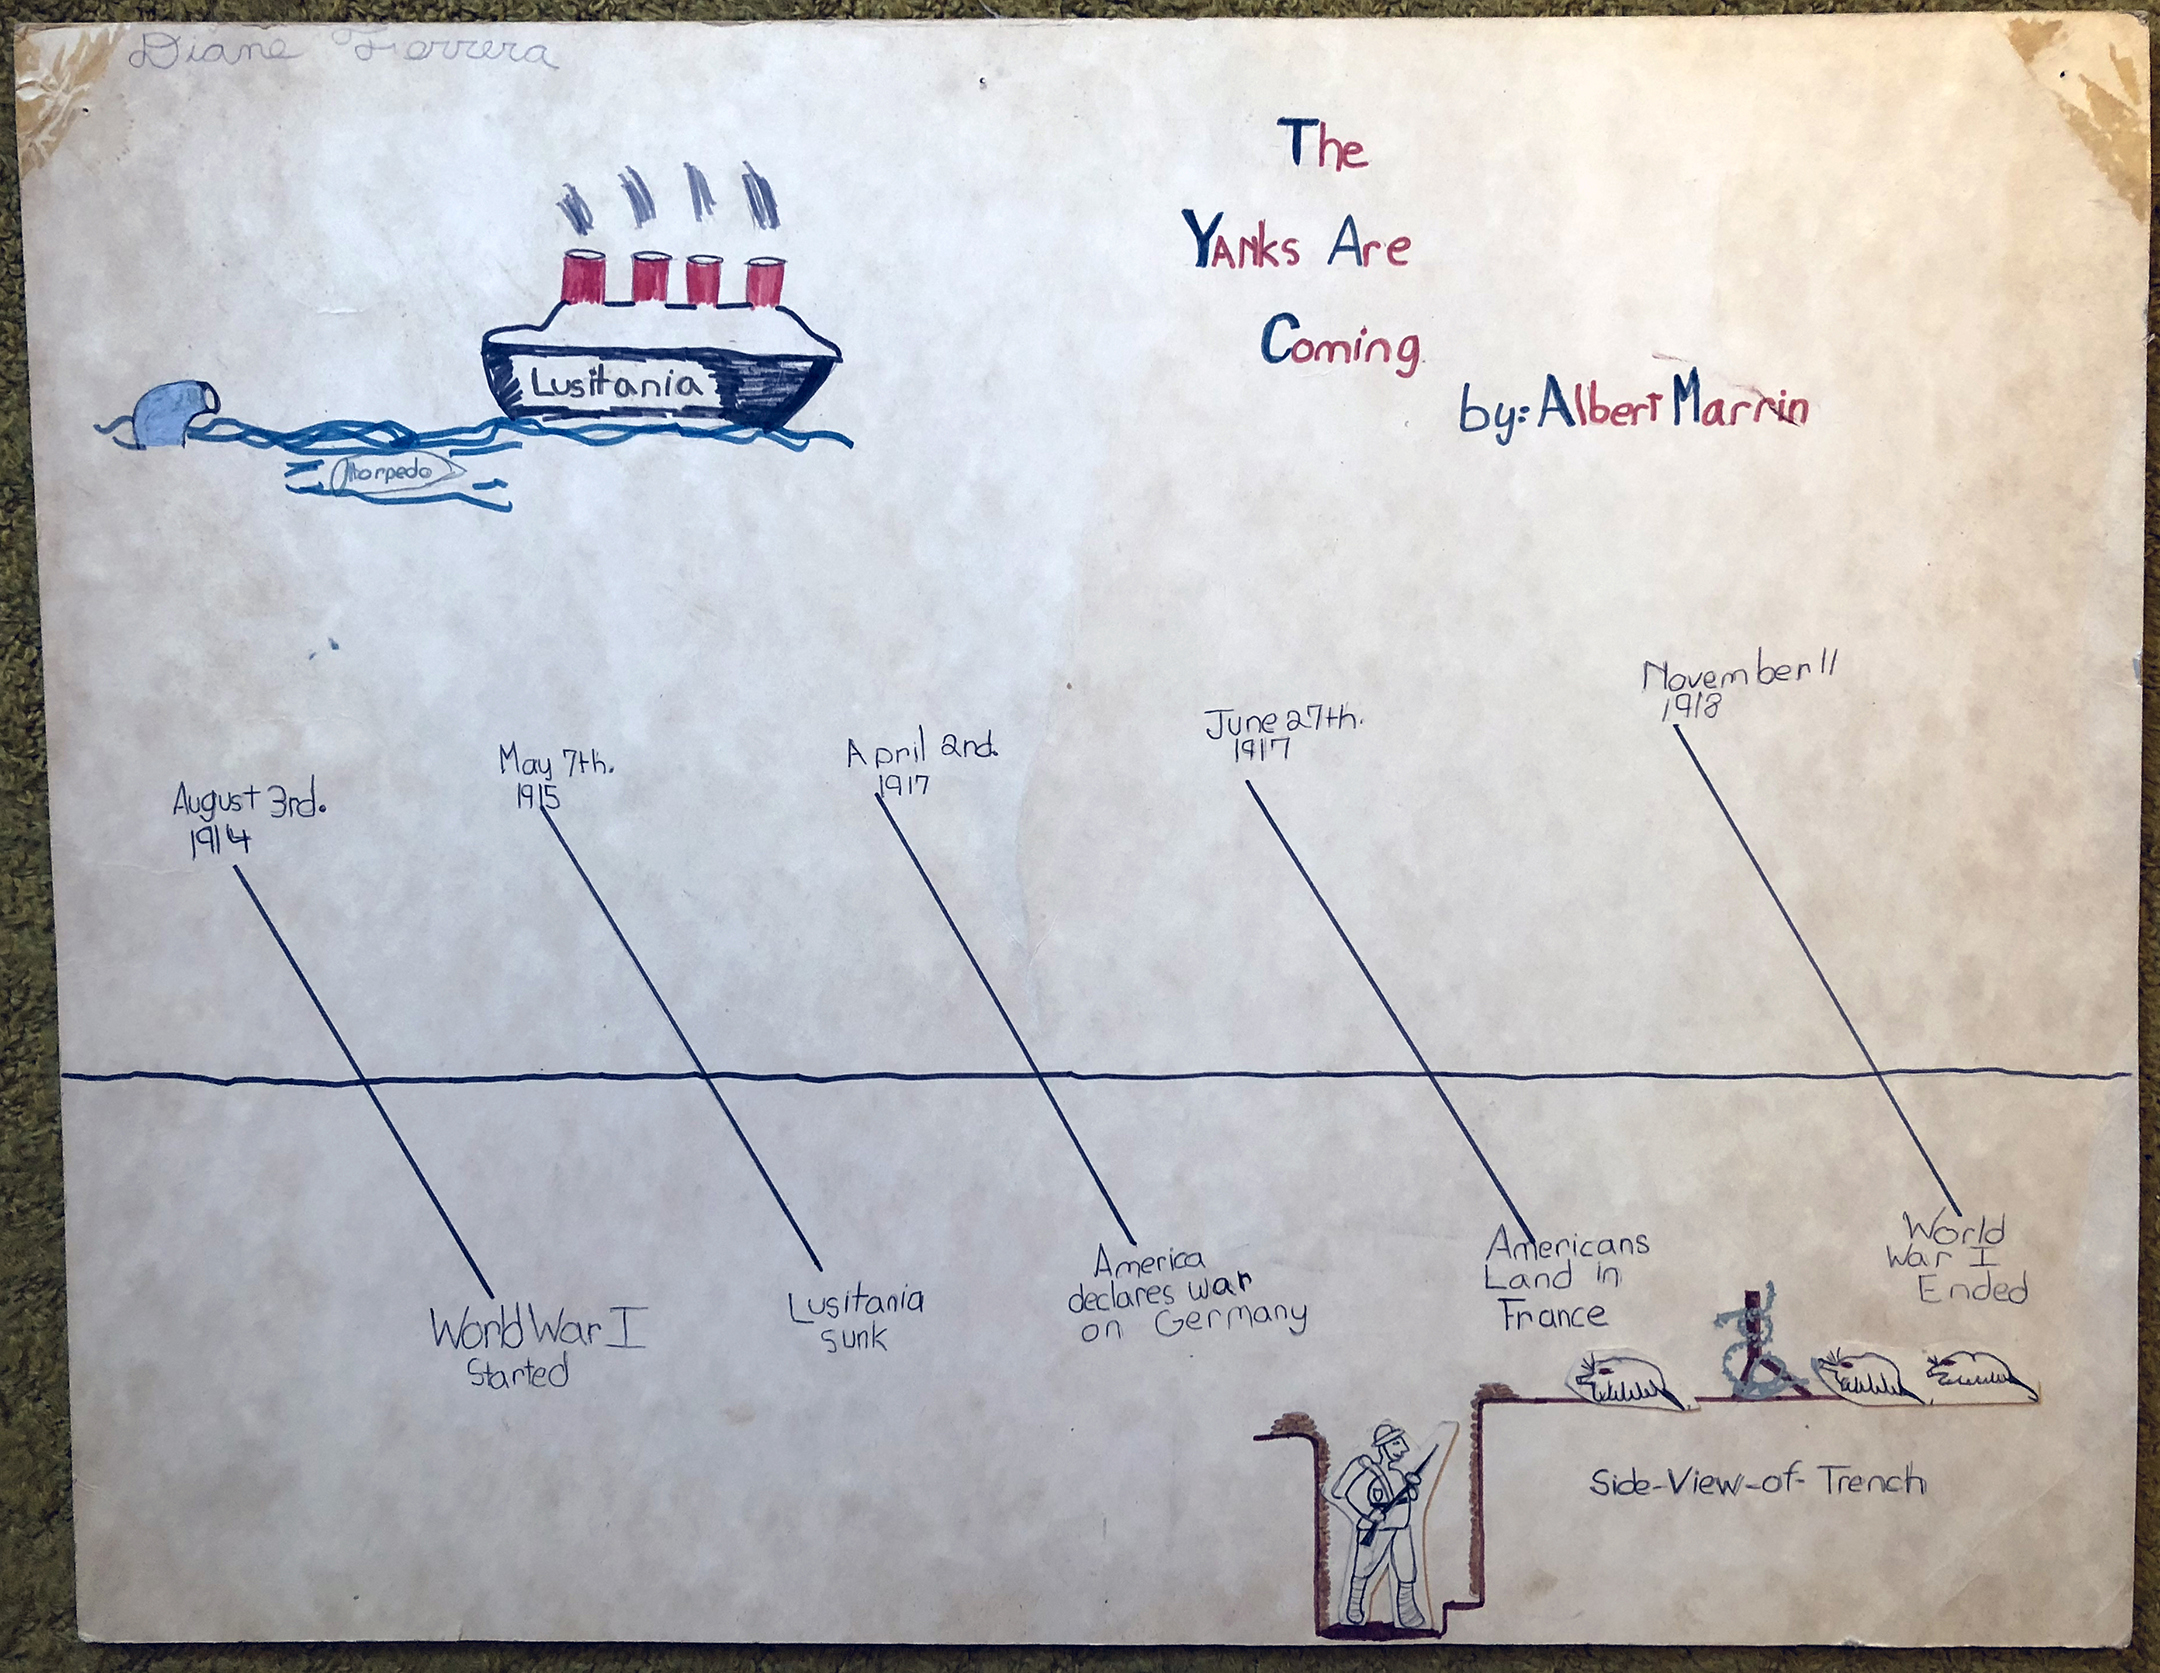 Diane Ferrera
The
Yanks Are
Coming
by: Albert Marrin
Lusitania
torpedo
August 3rd.
1914
May 7th.
1915
April 2nd.
1917
June 27th.
1917
November 11
1918
World War I
Started
Lusitania
sunk
America
declares war
on Germany
Americans
Land in
France
World
War I
Ended
Side-View-of-Trench